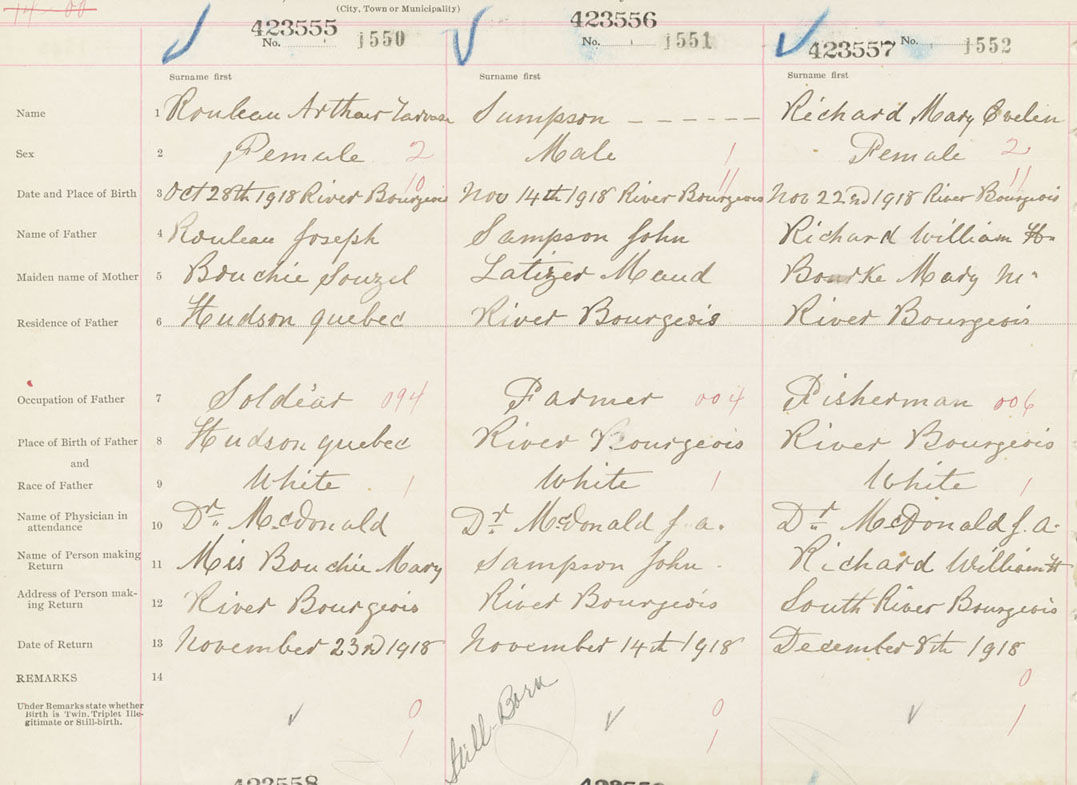 14-00
(City, Town or Municipality)
423555 No. 1550
423556 No. 1551
423557 No. 1552
Surname first Surname first Surname first
Name 1 Rouleau Arthur Sampson - - - - - - Richard Mary Evelin
Sex 2 Female 2 Male 1 Female 2
10 11 11
Date and Place of Birth 3 Oct 28th 1918 River Bourgeois Nov 14th 1918 River Bourgeois Nov 22nd 1918 River Bourgeois
Name of Father 4 Rouleau Joseph Sampson John Richard William H.
Maiden name of Mother 5 Bouchie Souzel Latizer Maud Bourke Mary M"
Residence of Father 6 Hudson quebec River Bourgeois River Bourgeois
Occupation of Father 7 Soldiar 094 Farmer 004 Fisherman 006
Place of Birth of Father 8 Hudson quebec River Bourgeois River Bourgeois
and
Race of Father 9 White 1 White 1 White 1
Name of Physician in
attendance 10 Dr. McDonald Dr. McDonald J. A. Dr. McDonald J. A.
Name of Person making
Return 11 Mis Bouchie Mary Sampson John. Richard William H
Address of Person mak-
ing Return 12 River Bourgeois River Bourgeois South River Bourgeois
Date of Return 13 November 23rd 1918 November 14th 1918 December 8th 1918
REMARKS 14
Under Remarks state whether
Birth is Twin, Triplet Ille-
gitimate or Still-birth.
0 1
Still-Born
0 1
0 1
423558